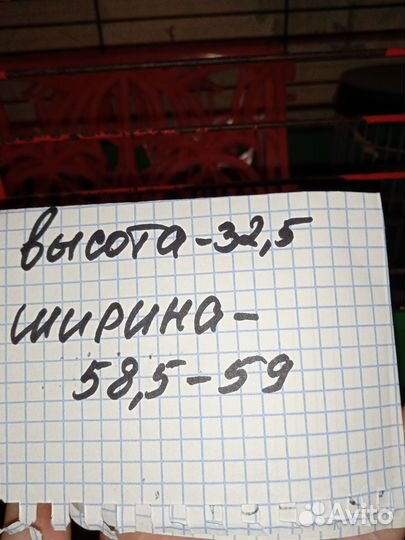 высота-32,5
ширина-
58,5-59
Avito